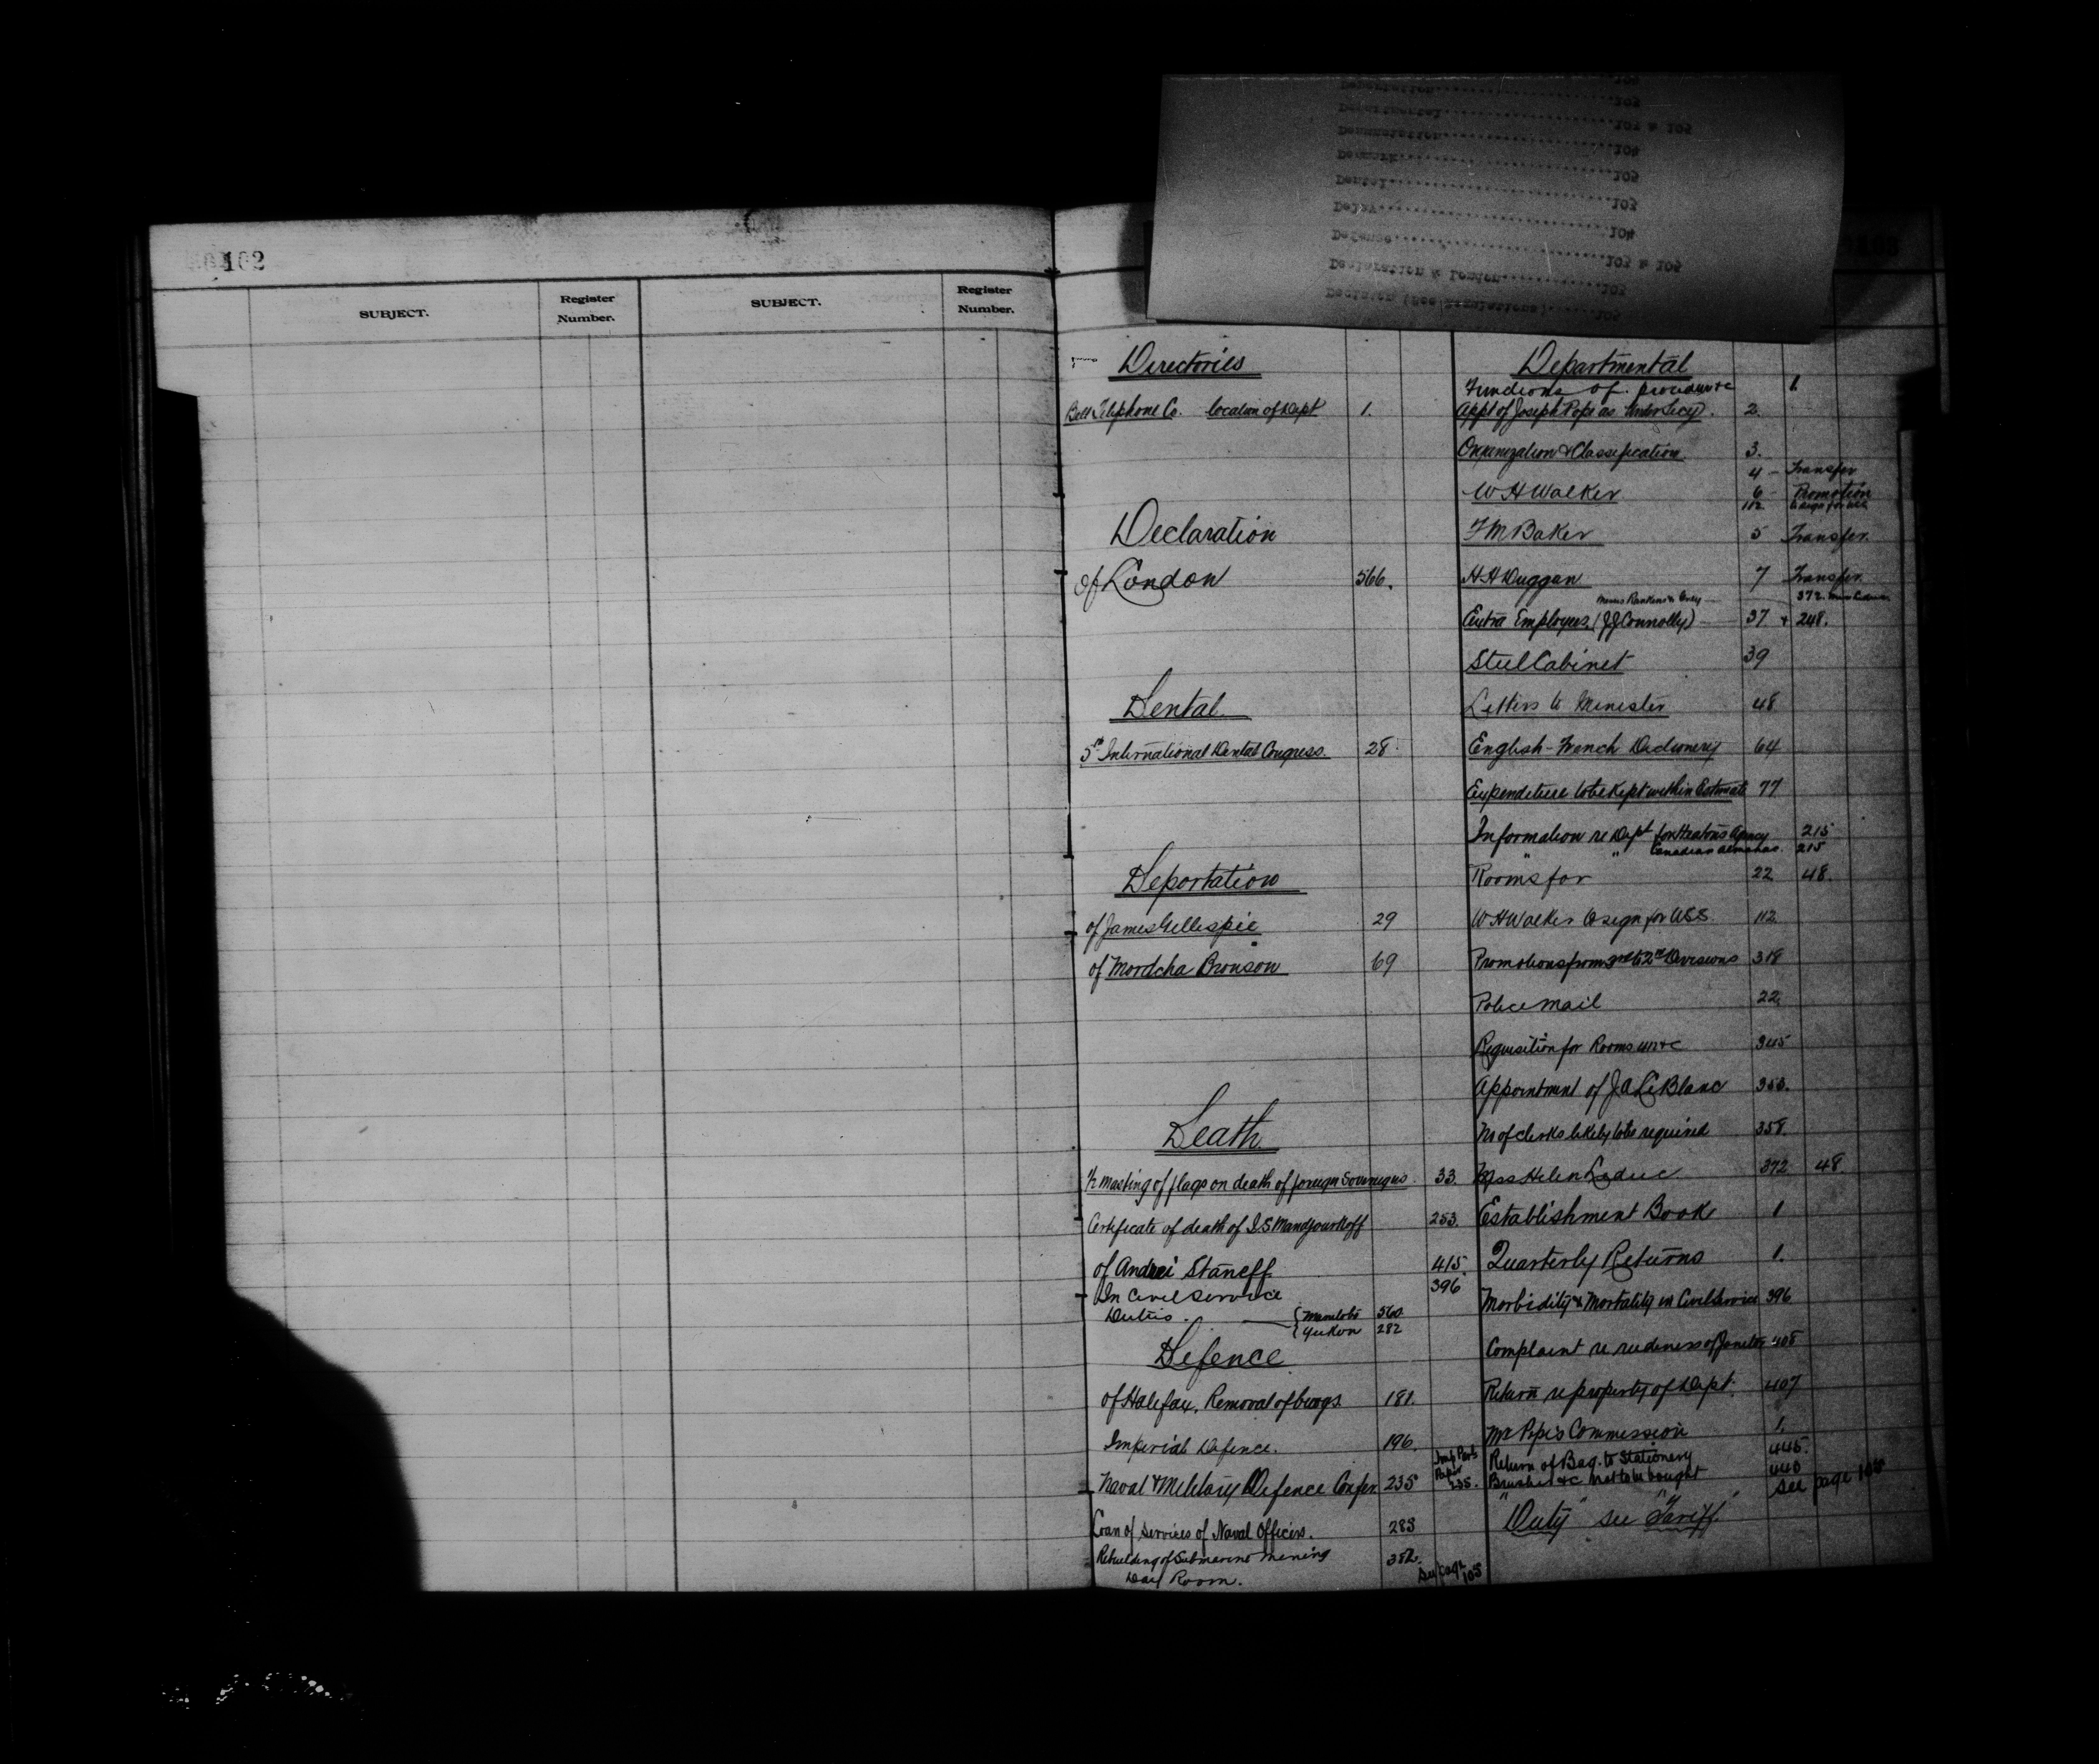 102
SUBJECT.
Register Number.
SUBJECT.
Register Number.
Deportation 103
Departmental 103 & 105
Denunciation 104
Denmark 105
Dental 103
Delay 104
Defense 103 & 105
Declaration & London 103
Decision (See Regulations) 105
Directories
Bell Telephone Co. location of Dept 1.
Declaration
of London 566.
Dental
5th International Dental Congress. 28.
Deportation
of James Gillespie 29
of Mordcha Bronson 69
Death
½ masting of flags on death of foreign Sovereigns 33.
Certificate of death of I.S. Mandjourkoff 253.
of Andrei Staneff 415.
In Civil Service 396
Duties. { Manitoba 560
{ Yukon 282
Defence
of Halifax. Removal of 181.
Imperial Defence. 196.
Naval & Military Defence Confer. 235 Paper 235.
Loan of Services of Naval Officers. 283
Rebuilding of Submarine Mining 382.
Room. See page 105
Departmental
Functions of procedure &c 1.
Appt of Joseph Pope as Under Secy. 2.
Organization & Classification 3.
W H Walker 4 - Transfer
6 - Promotion
112 to sign for
F M Baker 5 Transfer.
H H Duggan 7 Transfer.
372.
Extra Employees. (J J Connolly) 37 & 248.
Steel Cabinet 39
Letters to Minister 48
English-French Dictionary 64
Expenditure to be kept within Estimate 77
Information re Dept for Heaton's Agency 215
" " Canadian Almanac. 215
Rooms for 22 48.
W H Walker to sign for USS. 112
Promotions from 3rd to 2nd Divisions 318
Police Mail 22.
Requisition for Rooms 345
Appointment of J A LeBlanc 353.
No of clerks likely to be required 358.
Miss Helen Leduc 372 48.
Establishment Book 1
Quarterly Returns 1.
Morbidity & Mortality in Civil Service 396
Complaint re rudeness of Janitor 405
Return re property of Dept. 407
Mr Pope's Commission 1.
Return of Bag. to Stationery 445.
Brushes &c not to be bought 440
See page 105
"Duty" see "Tariff"